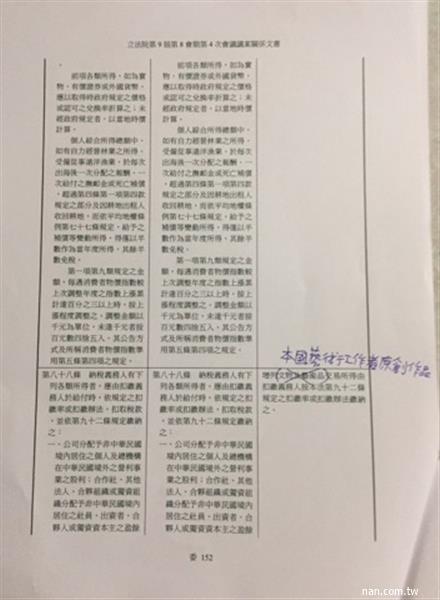 立法院第9屆第8會期第4次會議議案關係文書
前項各類所得，如為實
物、有價證券或外國貨幣，
應以取得時政府規定之價格
或認可之兌換率折算之；未
經政府規定者，以當地時價
計算。
個人綜合所得總額中，
如有自力經營林業之所得、
受僱從事遠洋漁業，於每次
出海後一次分配之報酬、一
次給付之撫卹金或死亡補償
，超過第四條第一項第四款
規定之部分及因耕地出租人
收回耕地，而依平均地權條
例第七十七條規定，給予之
補償等變動所得，得僅以半
數作為當年度所得，其餘半
數免稅。
第一項第九類規定之金
額，每遇消費者物價指數較
上次調整年度之指數上漲累
計達百分之三以上時，按上
漲程度調整之。調整金額以
千元為單位，未達千元者按
百元數四捨五入。其公告方
式及所稱消費者物價指數準
用第五條第四項之規定。
前項各類所得，如為實
物、有價證券或外國貨幣，
應以取得時政府規定之價格
或認可之兌換率折算之；未
經政府規定者，以當地時價
計算。
個人綜合所得總額中，
如有自力經營林業之所得、
受僱從事遠洋漁業，於每次
出海後一次分配之報酬、一
次給付之撫卹金或死亡補償
，超過第四條第一項第四款
規定之部分及因耕地出租人
收回耕地，而依平均地權條
例第七十七條規定，給予之
補償等變動所得，得僅以半
數作為當年度所得，其餘半
數免稅。
第一項第九類規定之金
額，每遇消費者物價指數較
上次調整年度之指數上漲累
計達百分之三以上時，按上
漲程度調整之。調整金額以
千元為單位，未達千元者按
百元數四捨五入。其公告方
式及所稱消費者物價指數準
用第五條第四項之規定。
本國藝術工作者原創作品
第八十八條　納稅義務人有下
列各類所得者，應由扣繳義
務人於給付時，依規定之扣
繳率或扣繳辦法，扣取稅款
，並依第九十二條規定繳納
之：
一、公司分配予非中華民國
境內居住之個人及總機構
在中華民國境外之營利事
業之股利；合作社、其他
法人、合夥組織或獨資組
織分配予非中華民國境內
居住之社員、出資者、合
夥人或獨資資本主之盈餘
第八十八條　納稅義務人有下
列各類所得者，應由扣繳義
務人於給付時，依規定之扣
繳率或扣繳辦法，扣取稅款
，並依第九十二條規定繳納
之：
一、公司分配予非中華民國
境內居住之個人及總機構
在中華民國境外之營利事
業之股利；合作社、其他
法人、合夥組織或獨資組
織分配予非中華民國境內
居住之社員、出資者、合
夥人或獨資資本主之盈餘
增列文物或藝術品交易所得由
扣繳義務人按本法第九十二條
規定之扣繳率或扣繳辦法繳納
之。
委 152
nan.com.tw